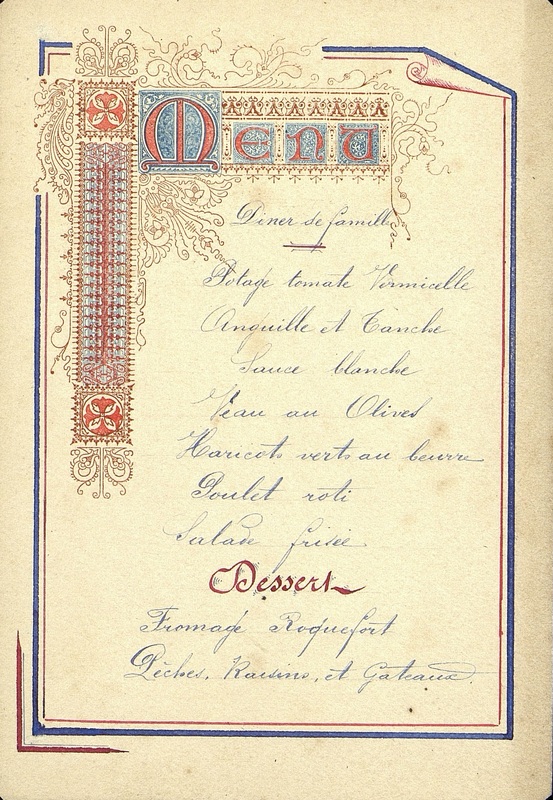 Menu
Diner de famille
Potage tomate Vermicelle
Anguille et Tanche
Sauce blanche
Veau au Olives
Haricots verts au beurre
Poulet roti
Salade frisée
Dessert
Fromage Roquefort
Pêches, Raisins, et Gateaux.